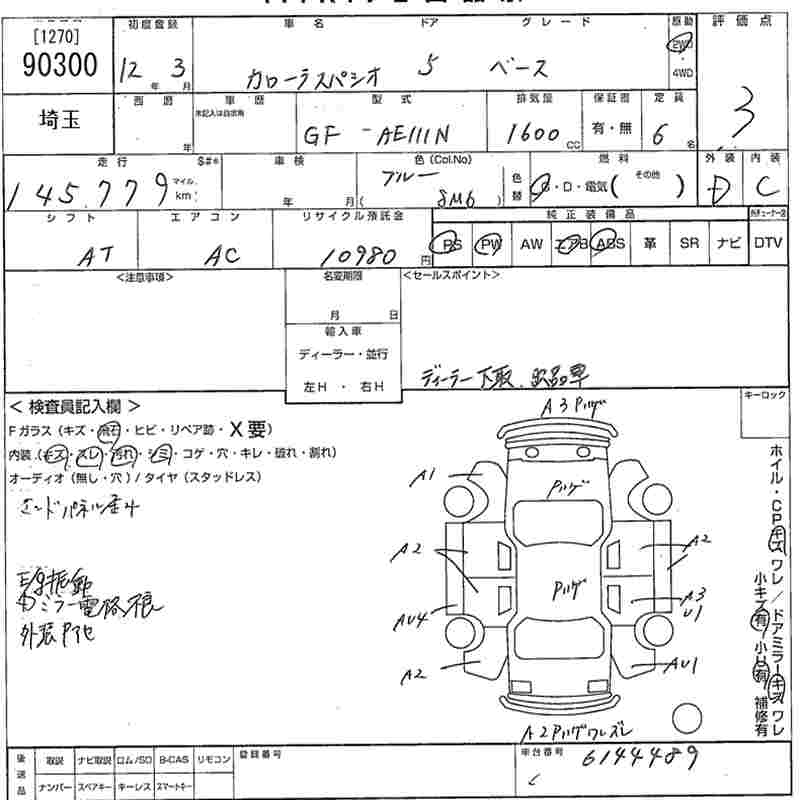 [1270]
90300
初度登録 車名 ドア グレード 原動 評価点
12年 3月 カローラスパシオ 5 ベース 2WD 4WD 3
埼玉 西暦 年 車歴 未記入は自家用 型式 排気量 保証書 定員
GF-AE111N 1600cc 有・無 6名
走行 S#* 車検 色(Col.No) 色替 燃料 外装 内装
145,779 マイル km 年 月 ブルー (8M6) G・D・電気 (その他) D C
シフト エアコン リサイクル預託金 純正装備品
AT AC 10980円 PS PW AW エアB ABS 革 SR ナビ DTV
<注意事項> 名変期限 <セールスポイント>
月 日
輸入車
ディーラー・並行
左H ・ 右H
ディーラー下取、出品車
<検査員記入欄> キーロック
Fガラス (キズ・飛石・ヒビ・リペア跡・X要)
内装 (キズ・スレ・汚れ・シミ・コゲ・穴・キレ・破れ・割れ)
オーディオ (無し・穴) / タイヤ (スタッドレス)
エンドパネル
E/g振動
外装
A3 Pハゲ
A1
Pハゲ
A2 A2
Pハゲ
A3
U1
AU4
A2 AU1
A2 Pハゲ ワレ ズレ
ホイル・CPキズ ワレ / ドアミラーキズ ワレ
小キズ有 / 小U有 補修有
後送品 取説 ナビ取説 ロム/SD B-CAS リモコン 登録番号 車台番号
ナンバー スペアキー キーレス スマートキー 6144489